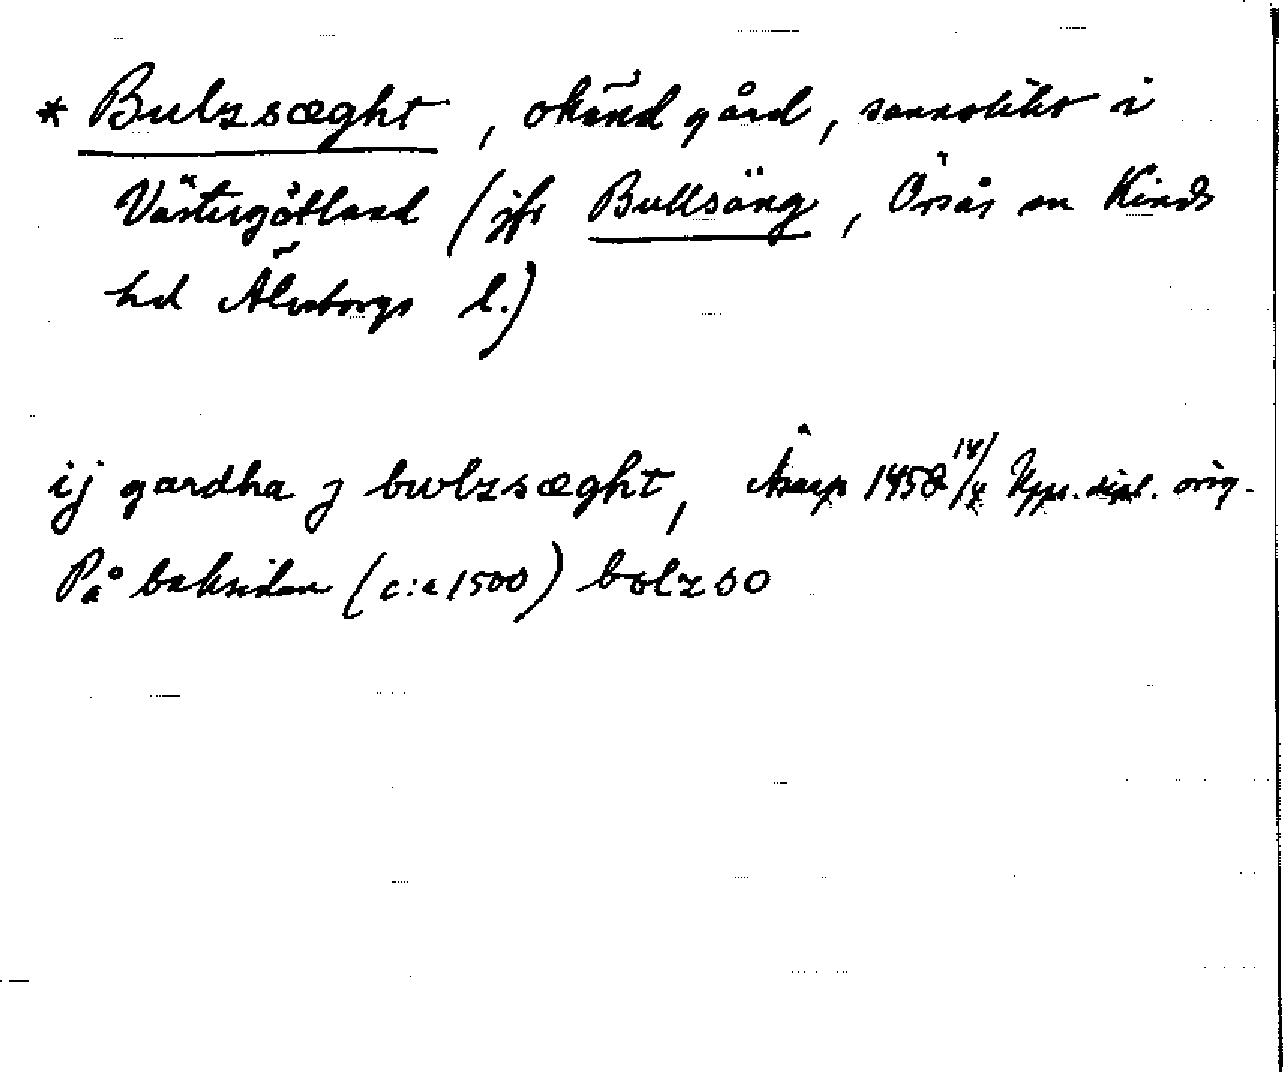 * Bulzsæght, okänd gård, sannolikt i
Västergötland (jfr Bullsäng, Örsås sn Kinds
hd Älvsborgs l.)
ij gardha j bwlzsæght, 1458 14/ Upps. dipl. orig.
På baksidan (c:a 1500) bolzso